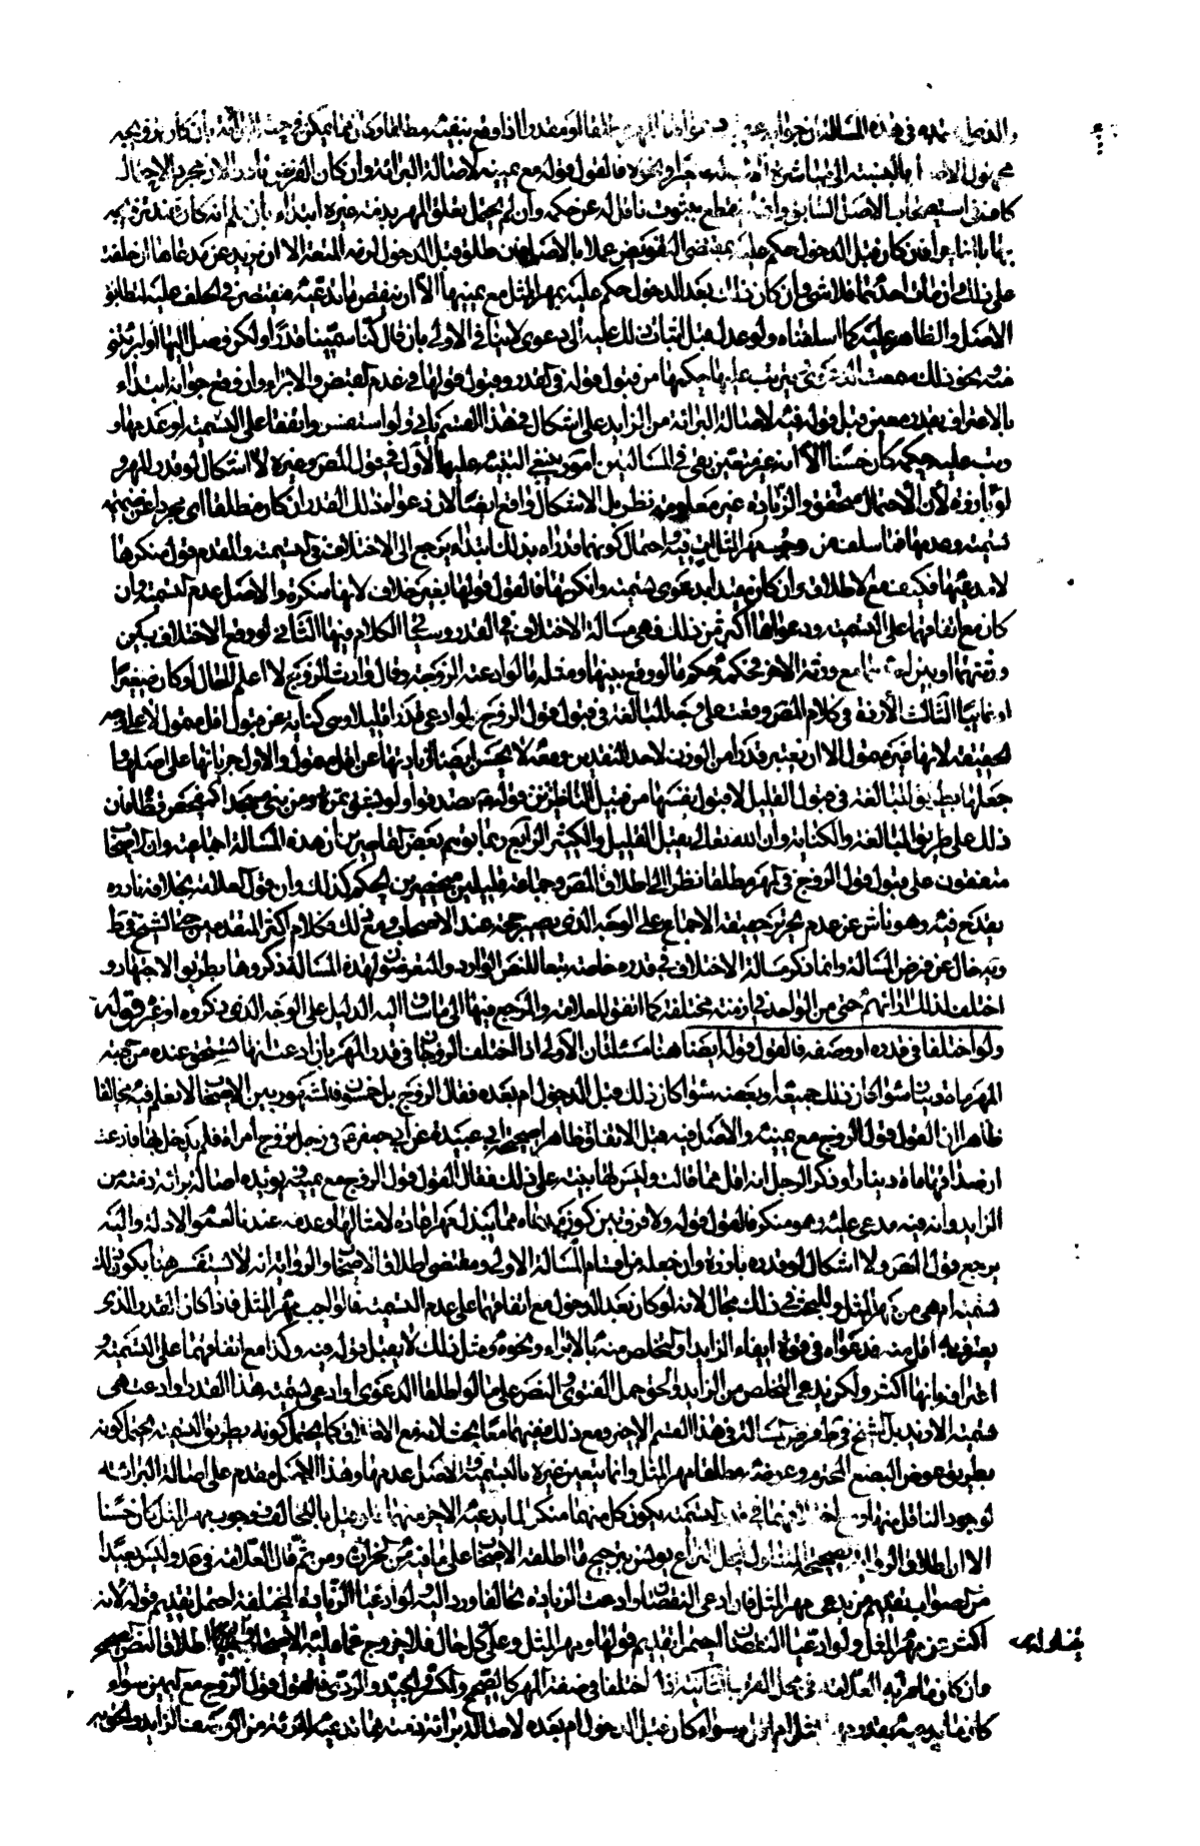 والذي في هذه المسألة ان جوابه مطلقا او مقدرا اذا وقع بنفيه مطلقا وكان مما يمكن في حيث البرائة بان كان تزويجه
مجهول الاصل بالنسبة الى مباشرة او نحوه فالقول قوله مع يمينه لاصالة البرائة وان كان الفرض نادرا لان مجرد الاحتمال
كاف في استصحاب الاصل السابق وان لم يقطع بثبوت ناقل له عن حكمه وان لم يحتمل تعلق المهر بذمة غيره ابتداء بان علم انه كان عند تزويجه
بها بالغا حرا فان كان قبل الدخول حكم عليه بمقتضى التفويض عملا بالاصل فان طلق قبل الدخول لزمه المتعة الا ان يزيد عن مدعاها ان حلفت
على ذلك وان مات احدهما فلا شئ وان كان ذلك بعد الدخول حكم عليه بمهر المثل مع يمينها الا ان ينقص ما تدعيه فيقتصر والحلف عليه لتطابق
الاصل والظاهر عليه كما اسلفناه ولو عدل قبل اثبات ذلك عليه الى دعوى لا ينافي الاولى بان قال كنا سمينا قدرا ولكن وصل اليها او ابرئتني
منه ونحو ذلك سمعت الدعوى ويترتب عليها حكمها من قبول قوله في القدر وقبول قولها في عدم القبض والابراء وان وقع جوابه ابتداء
بالاعتراف بقدر معين قبل قوله فيه لاصالة البرائة من الزايد على اشكال في هذا القسم يأتي ولو استفسر واتفقا على التسمية او عدمها و
رتب عليه حكمه كان حسنا الا انه غير متعين بقي في المسألتين امور ينبغي التنبيه عليها الاول في قول المص وغيره لا اشكال لو قدر المهر و
لو بأرزة لأن الاحتمال متحقق والزيادة غير معلومة نظر بل الاشكال واقع ايضا لان دعواه ذلك القدر ان كان مطلقا اي مجردا عن
تسمية وعدمها فما سلف من وجوب مهر المثل ات فيه واحتمال كونهما قدراه بذلك ابتداء يرجع الى الاختلاف في التسمية والمقدم قول منكرها
لا مدعيها فكيف مع الاطلاق وان كان مقيدا بدعوى تسمية وانكرتها فالقول قولها بغير خلاف لانها منكرة والاصل عدم التسمية وان
كان مع اتفاقهما على التسمية ودعواها اكثر من ذلك فهي مسألة الاختلاف في القدر وسيجئ الكلام فيها الثاني لو وقع الاختلاف بين
ورثتهما او بين احدهما مع ورثة الاخر فحكمه حكم ما لو وقع بينهما ومثله ما لو ادعته الزوجة وقال وارث الزوج لا اعلم الحال او كان صغيرا
او غائبا الثالث الأرزة في كلام المص وقعت على وجه المبالغة في قبول قول الزوج لو ادعى قدرا قليلا وهي كناية عن قبول اقل متمول لا على وجه
الحقيقة لانها غير متمول الا ان يعتبر قدرا من الوزن لاحد النقدين ومعه لا يحسن ايضا لزيادتها عن اقل متمول والاول جريانها على اصلها و
جعلها بطريق المبالغة في قبول القليل لا قبول نفسها من قبيل الناظرين قوله تصدقوا ولو بشق تمرة ومن بنى مسجدا كمفحص قطاة فان
ذلك على طريق المبالغة والكناية وان الله تعالى يقبل القليل والكثير الرابع ربما توهم بعض القاصرين ان هذه المسألة اجماعية وان اصحابنا
متفقون على قبول قول الزوج في المهر مطلقا نظرا الى اطلاق المص وجماعة قليلين مصرحين الحكم كذلك وان قول العلامة بخلافه نادر و
يقدح فيه وهو ناش عن عدم تحرير حقيقة الاجماع على الوجه الذي يصير حجة عند الاصحاب ومع ذلك فكلام اكثر المتقدمين حتى الشيخ في ط
وغيره خال عن فرض المسألة وانما ذكر مسألة الاختلاف في قدره خاصة تبعا للنص الوارد والمتعرضون لهذه المسألة ذكروها بطريق الاجتهاد و
اختلفت لذلك اراؤهم حتى من الواحد في ازمنة مختلفة كما اتفق للعلامة والمرجع فيها الى ما ساق اليه الدليل على الوجه الذي ذكروه او غيره قوله
ولو اختلفا في قدره او وصفه فالقول قوله ايضا هنا مسئلتان الاولى اذا اختلف الزوجان في قدر المهر بان ادعت انها تستحق عنده من جهة
المهر مأة دينار سواء كان ذلك جميعه او بعضه سواء كان ذلك قبل الدخول ام بعده فقال الزوج بل خمسون فالمشهور بين الاصحاب لا نعلم فيه مخالفا
ظاهرا ان القول قول الزوج مع يمينه والاصل فيه قبل الاتفاق ظاهر صحيحة ابي عبيدة عن ابي جعفر ع في رجل تزوج امرأة فلم يدخل بها فادعت
ان صداقها مأة دينار وذكر الرجل انه اقل مما قالت وليس لها بينة على ذلك فقال القول قول الزوج مع يمينه ويؤيده اصالة برائة ذمته من
الزايد وانه فيه مدعى عليه وهو منكر فالقول قوله ولا فرق بين كون مدعاه مما يبذل مهرا عادة لامثالها وعدمه عندنا لعموم الادلة واليه
يرجع قول المص ولا اشكال لو قدره بأرزة وان جعله من اقسام المسألة الاولى ومقتضى اطلاق الاصحاب والرواية انه لا يستفسر هنا بكون ذلك
تسمية ام هي من مهر المثل وللبحث في ذلك مجال لانه لو كان بعد الدخول مع اتفاقهما على عدم التسمية فالواجب مهر المثل فاذا كان القدر الذي
يعترف به اقل منه فدعواه في قوة ايفاء الزايد او التخلص منه بالابراء ونحوه ومثل ذلك لا يقبل قوله فيه وكذا مع اتفاقهما على التسمية و
اعترافه بانها اكثر ولكن يدعي التخلص من الزايد والحق حمل الفتوى والنص على ما لو اطلقا الدعوى او ادعى تسمية هذا القدر وادعت هي
تسمية الازيد بل الشيخ في ط فرض المسألة في هذا القسم الاخير ومع ذلك ففيهما معا بحث لانه مع الاطلاق كما يحتمل كونه بطريق التسمية يحتمل كونه
بطريق عوض البضع المحترم وعوضه مطلقا مهر المثل وانما يتعين غيره بالتسمية والاصل عدمها وهذا الاصل مقدم على اصالة البرائة
لوجود الناقل منها ومع اختلافهما في قدر التسمية يكون كل منهما منكرا لما يدعيه الاخر منهما فلو قيل بالتحالف ووجوب مهر المثل كان حسنا
الا ان اطلاق الرواية الصحيحة المتناول لمحل النزاع يؤنس بترجيح ما اطلقه الاصحاب على ما فيه من الحزازة ومن ثم قال العلامة في عد وليس بعيدا
من الصواب تقديم من يدعي مهر المثل فان ادعى النقصان وادعت الزيادة تحالفا وردا اليه ولو ادعيا الزيادة المختلفة احتمل تقديم قوله لانه
اكثر من مهر المثل ولو ادعيا النقصان احتمل تقديم قولها ومهر المثل وعلى كل حال فلا خروج عما عليه الاصحاب واطلاق النص الصحيح
وان كان ما قربه العلامة في محل القرب الثانية اذا اختلفا في صفة المهر كالصحيح والمكسر والجيد والردي فالقول قول الزوج مع اليمين سواء
كان ما يدعيه بقدر مهر المثل ام اقل وسواء كان قبل الدخول ام بعده لاصالة برائة ذمته مما تدعيه المرأة من الوصف الزايد ونحوه